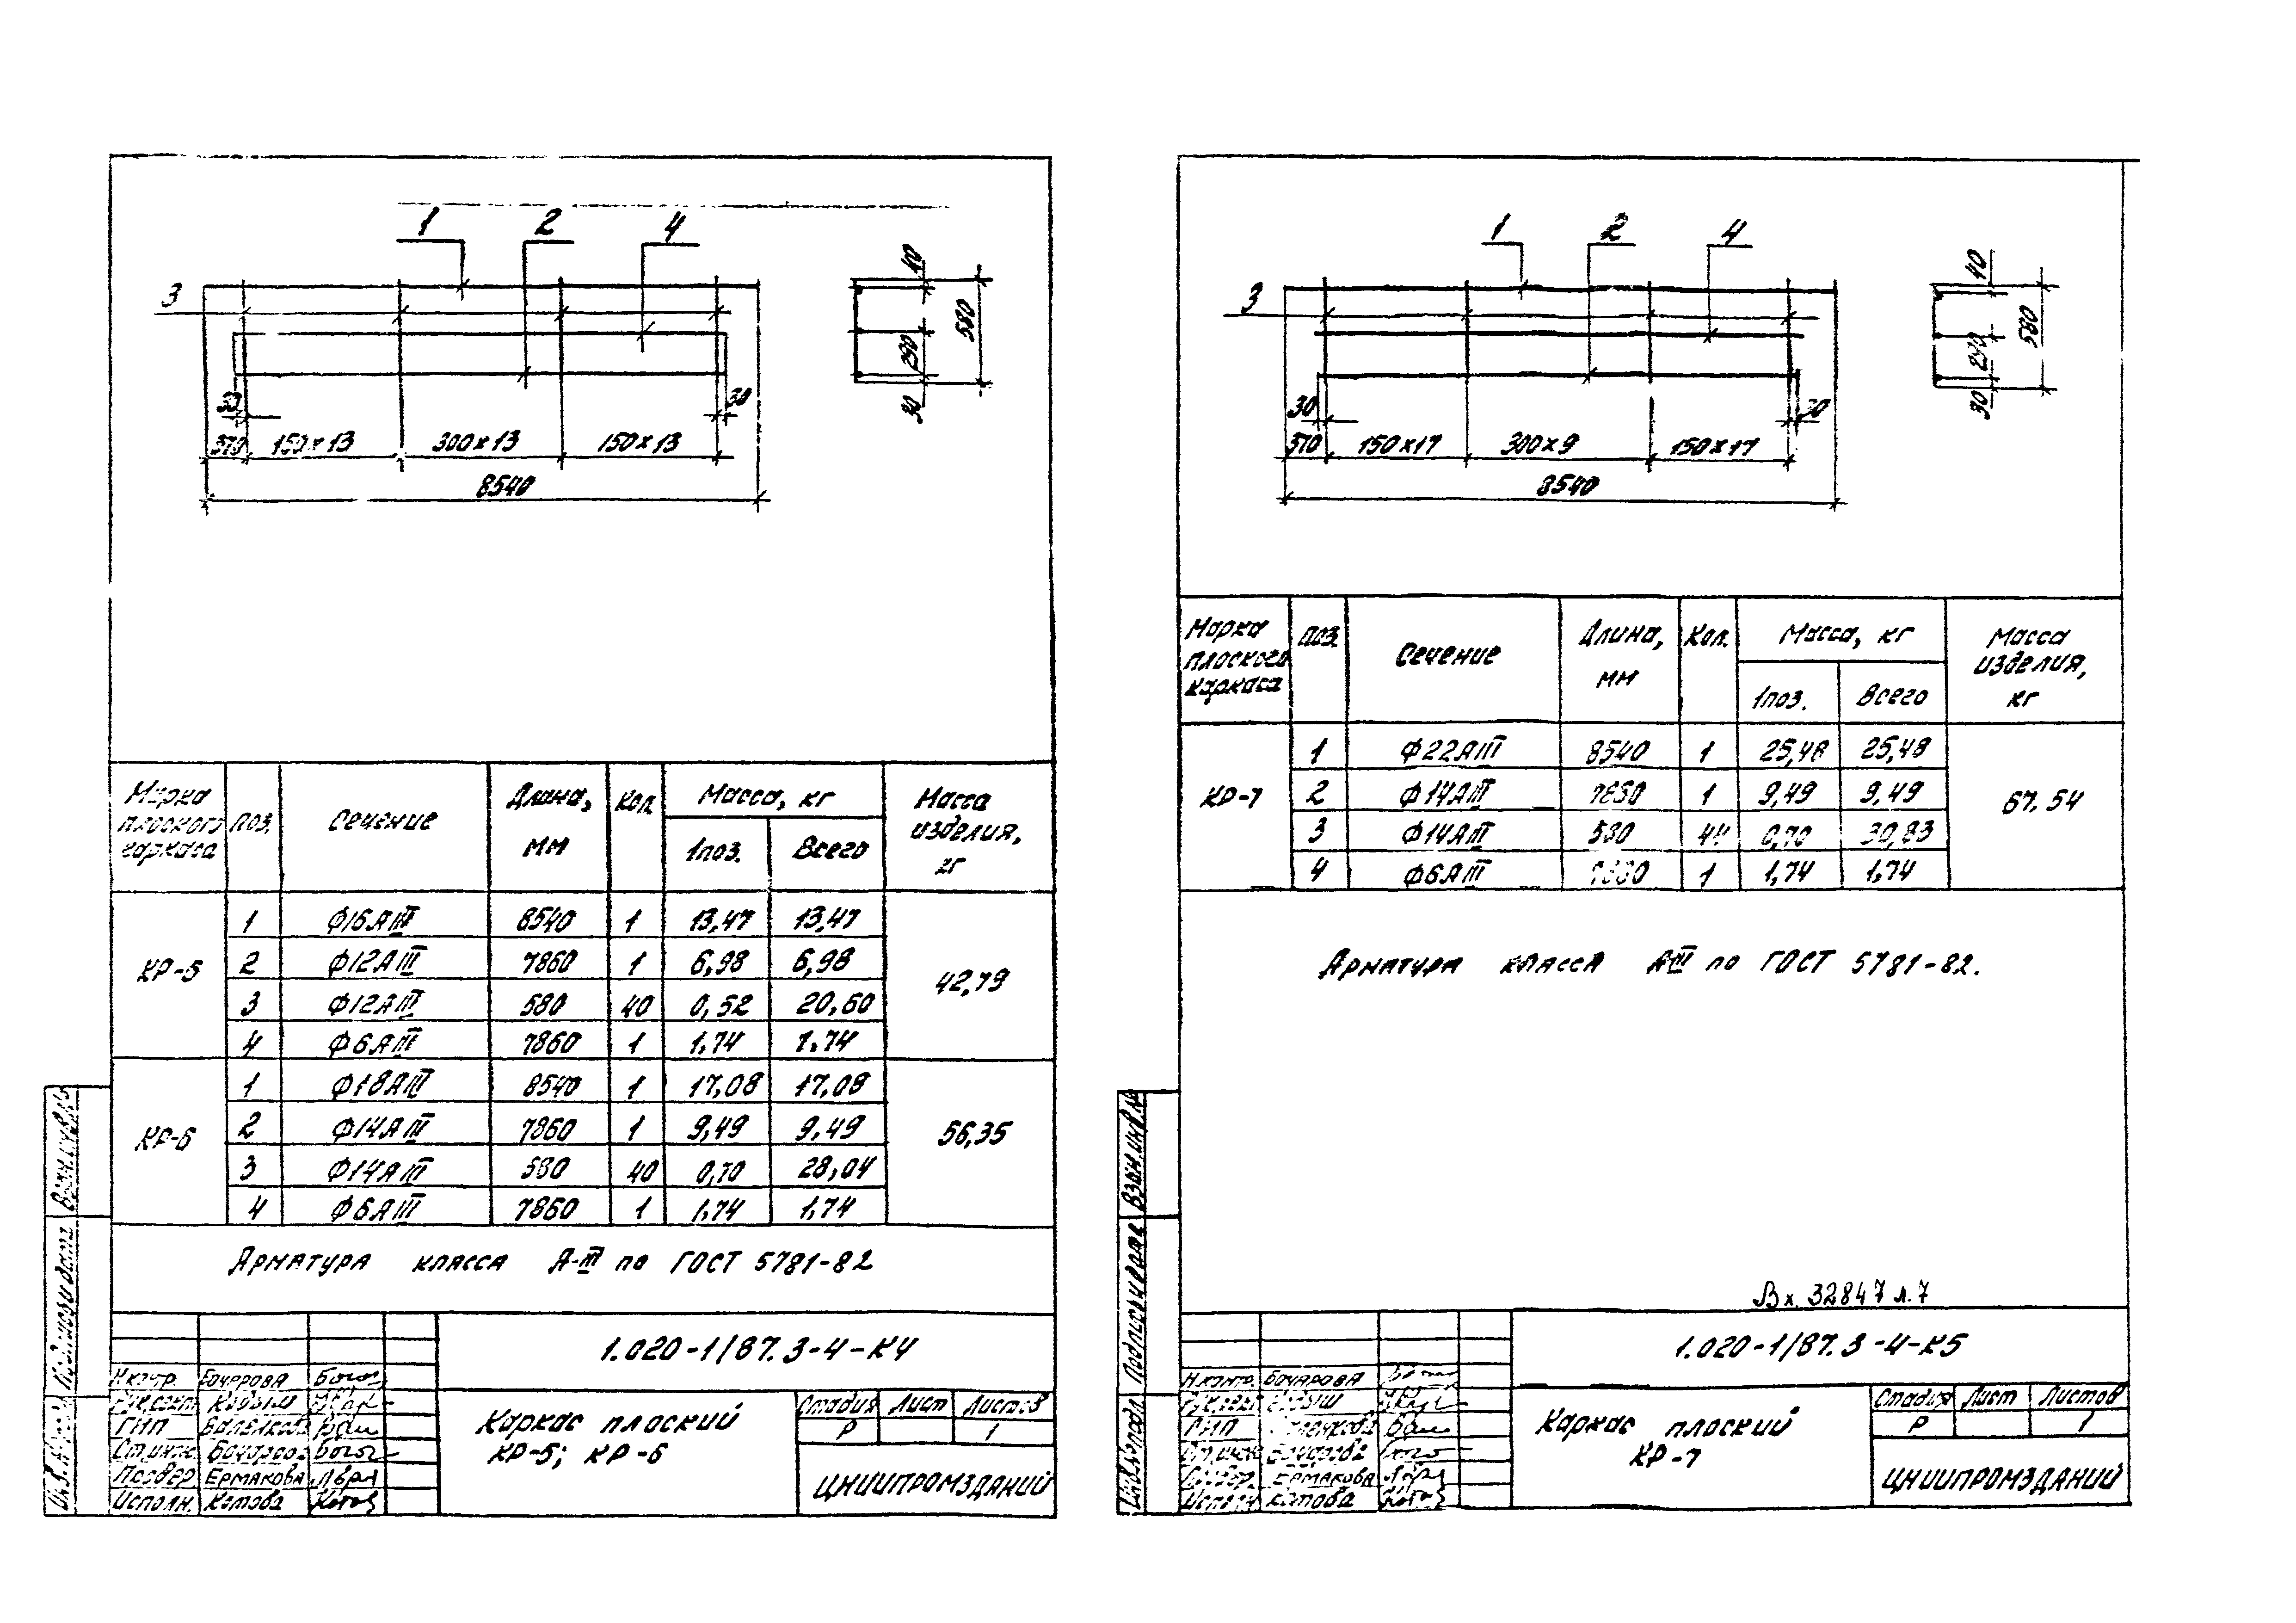 1 2 4
3
10
290
30
580
30 30
370 150×13 300×13 150×13
8540
Марка плоского каркаса Поз. Сечение Длина, мм Кол. Масса, кг Масса изделия, кг
1поз. Всего
КР-5 1 Ф16АIII 8540 1 13,47 13,47 42,79
2 Ф12АIII 7860 1 6,98 6,98
3 Ф12АIII 580 40 0,52 20,60
4 Ф6АIII 7860 1 1.74 1.74
КР-6 1 Ф18АIII 8540 1 17,08 17,08 56,35
2 Ф14АIII 7860 1 9,49 9,49
3 Ф14АIII 580 40 0,70 28,04
4 Ф6АIII 7860 1 1,74 1,74
Арматура класса А-III по ГОСТ 5781-82
1.020-1/87.3-4-К4
Н.контр. Бочарова
ГИП
Ст.инж.
Ермакова
Исполн. Котова
Каркас плоский
КР-5; КР-6
Стадия Лист Листов
Р 1
ЦНИИПРОМЗДАНИЙ
1 2 4
3
10
290
30
580
30 30
370 150×17 300×9 150×17
8540
Марка плоского каркаса Поз. Сечение Длина, мм Кол. Масса, кг Масса изделия, кг
1поз. Всего
КР-7 1 Ф22АIII 8540 1 25,48 25,48 67.54
2 Ф14АIII 7860 1 9,49 9,49
3 Ф14АIII 580 44 0,70 30,83
4 Ф6АIII 7860 1 1,74 1,74
Арматура класса АIII по ГОСТ 5781-82.
Вх. 32847 л.7
Взам.инв.№
Подпись и дата
Инв.№ подл.
1.020-1/87.3-4-К5
Н.контр. Бочарова
ГИП
Ермакова
Котова
Каркас плоский
КР-7
Стадия Лист Листов
Р 1
ЦНИИПРОМЗДАНИЙ